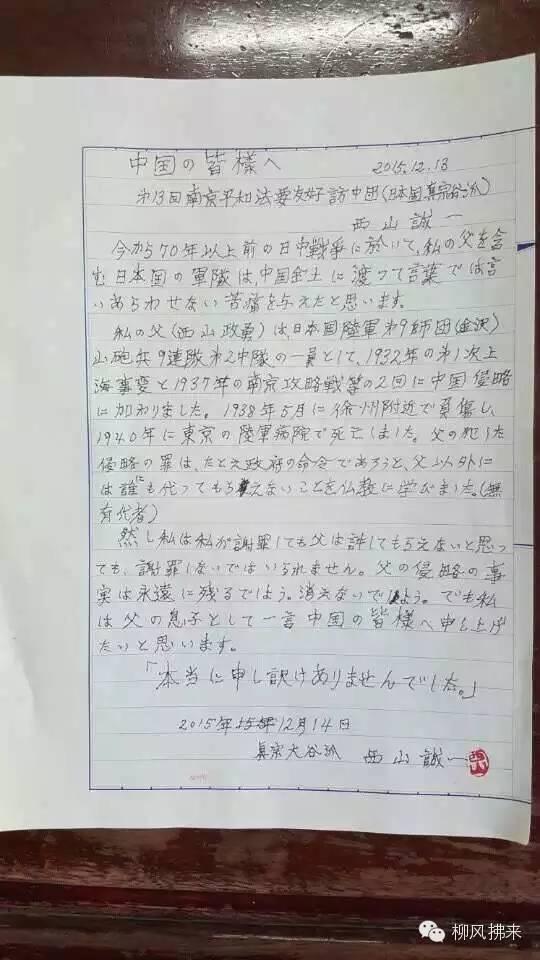 中国の皆様へ
2015.12.13
第13回南京平和法要友好訪中団(日本国真宗大谷派)
西山誠一
今から70年以上前の日中戦争に於いて、私の父を含
む日本国の軍隊は、中国全土に渡って言葉では言
いあらわせない苦痛を与えたと思います。
私の父(西山政勇)は、日本国陸軍第9師団(金沢)
山砲兵9連隊第2中隊の一員として、1932年の第1次上
海事変と1937年の南京攻略戦等の2回に中国侵略
に加わりました。1938年5月に徐州附近で負傷し、
1940年に東京の陸軍病院で死亡しました。父の犯した
侵略の罪は、たとえ政府の命令であろうと、父以外に
は誰にも代ってもらえないことを仏教に学びました。(無
有代者)
然し私は私が謝罪しても父は許してもらえないと思っ
ても、謝罪しないではいられません。父の侵略の事
実は永遠に残るでしょう。消えないでしょう。でも私
は父の息子として一言中国の皆様へ申し上げ
たいと思います。
「本当に申し訳けありませんでした。」
2015年12月14日
真宗大谷派 西山誠一
柳风拂来